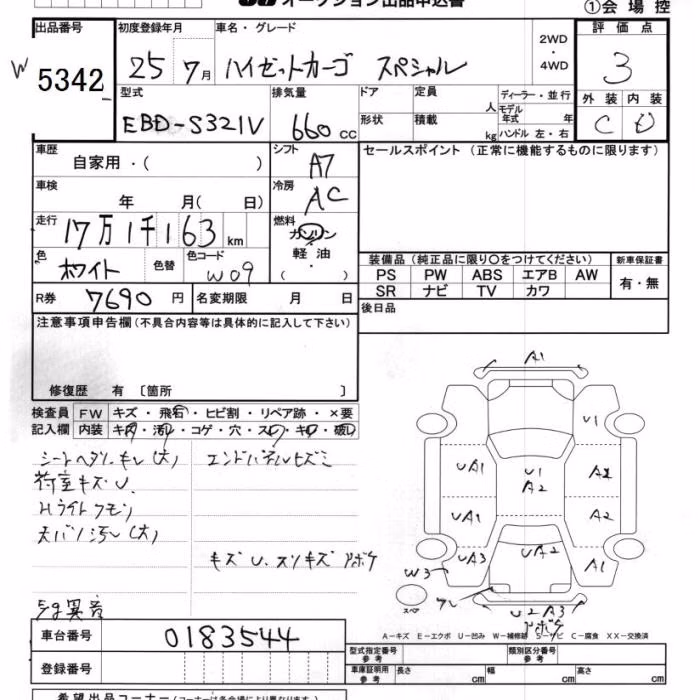 オークション出品申込書
①会場控
出品番号 初度登録年月 車名・グレード 2WD・4WD 評価点
W 5342 25 7月 ハイゼットカーゴ スペシャル 3
型式 排気量 ドア 定員 人 ディーラー・並行 外装 内装
EBD-S321V 660 CC 形状 積載 kg モデル年式 年 C D
ハンドル 左・右
車歴 自家用・( ) シフト A7 セールスポイント (正常に機能するものに限ります)
車検 年 月( 日) 冷房 AC
走行 17万1千163 km 燃料 ガソリン・軽油 ( )
色 ホワイト 色替 色コード W09
装備品 (純正品に限り○をつけてください) 新車保証書
PS PW ABS エアB AW 有・無
SR ナビ TV カワ
R券 7690円 名変期限 月 日 後日品
注意事項申告欄(不具合内容等は具体的に記入して下さい)
修復歴 有 〔箇所 〕
検査員 FW キズ・飛石・ヒビ割・リペア跡・×要
記入欄 内装 キズ・汚レ・コゲ・穴・スレ・キレ・破レ
シートヘタリ.キレ(大) エンドパネルヒズミ
荷室キズU.
Hライトクモリ
天バリ汚レ(大)
キズU.スリキズ アホケ
Eg異音
A1
U1
UA1 U1 A2 A2
UA1 A2
UA3 UA2 A1
W3
スペア
U2A3
アホケ
A−キズ E−エクボ U−凹み W−補修跡 S−サビ C−腐食 XX−交換済
車台番号 0183544
型式指定番号 参考 類別区分番号 参考
登録番号 車庫証明用 参考 長さ cm 幅 cm 高さ cm
希望出品コーナー(コーナーは各会場により異なります)